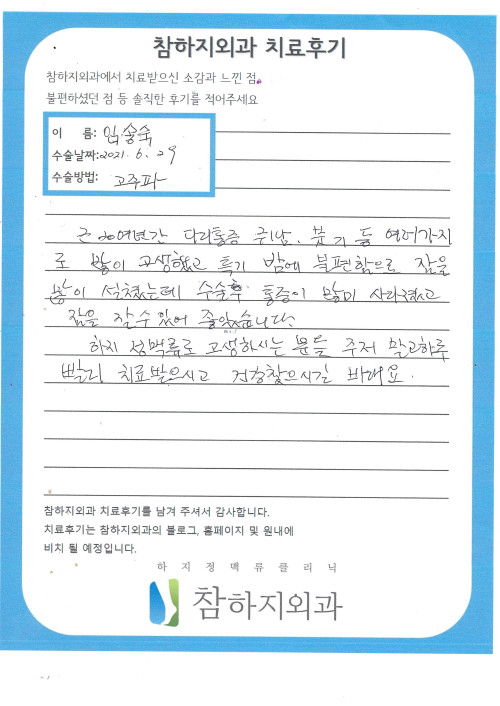 참하지외과 치료후기
참하지외과에서 치료받으신 소감과 느낀 점,
불편하셨던 점 등 솔직한 후기를 적어주세요
이 름: 임송숙
수술날짜:2021. 6. 29
수술방법: 고주파
근 20여년간 다리통증 쥐남, 붓기 등 여러가지
로 많이 고생했고 특기 밤에 불편함으로 잠을
많이 설쳤는데 수술후 통증이 많이 사라졌고
잠을 잘수 있어 좋았습니다.
하지 정맥류로 고생하시는 분들 주저 말고하루
빨리 치료받으시고 건강찾으시길 바래요.
참하지외과 치료후기를 남겨 주셔서 감사합니다.
치료후기는 참하지외과의 블로그, 홈페이지 및 원내에
비치 될 예정입니다.
하지정맥류클리닉
참하지외과